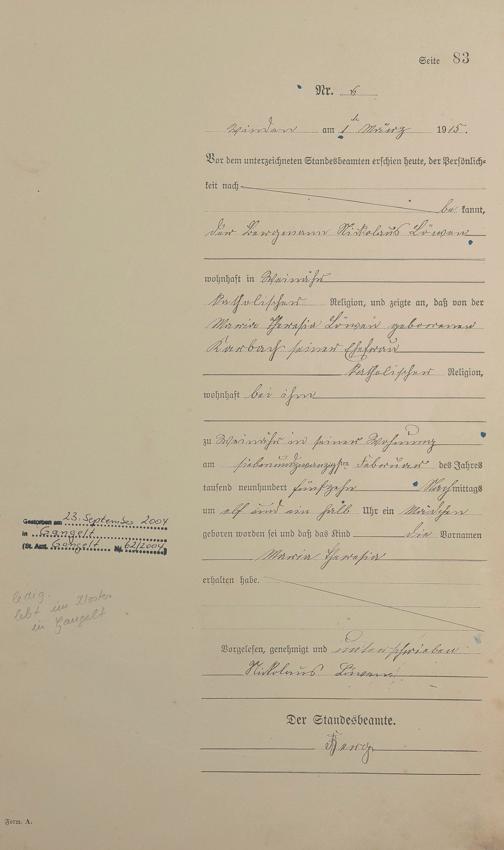 Seite 83
Nr. 6
Winden am 1ten März 1915.
Vor dem unterzeichneten Standesbeamten erschien heute, der Persönlich-
keit nach
be kannt,
der Bergmann Nikolaus Löwen
wohnhaft in Weinähr
katholischer Religion, und zeigte an, daß von der
Maria Theresia Löwen geborenen
Karbach seiner Ehefrau
katholischer Religion,
wohnhaft bei ihm
zu Weinähr in seiner Wohnung
am siebenundzwanzigsten Februar des Jahres
tausend neunhundert fünfzehn Nachmittags
um elf und ein halb Uhr ein Mädchen
geboren worden sei und daß das Kind die Vornamen
Maria Theresia
erhalten habe.
Gestorben am 23. September 2004
in Gangelt
(St. Amt. Gangelt Nr. 62/2004)
ledig.
lebt im Kloster
in Gangelt
Vorgelesen, genehmigt und unterschrieben
Nikolaus Löwen
Der Standesbeamte.
Form. A.